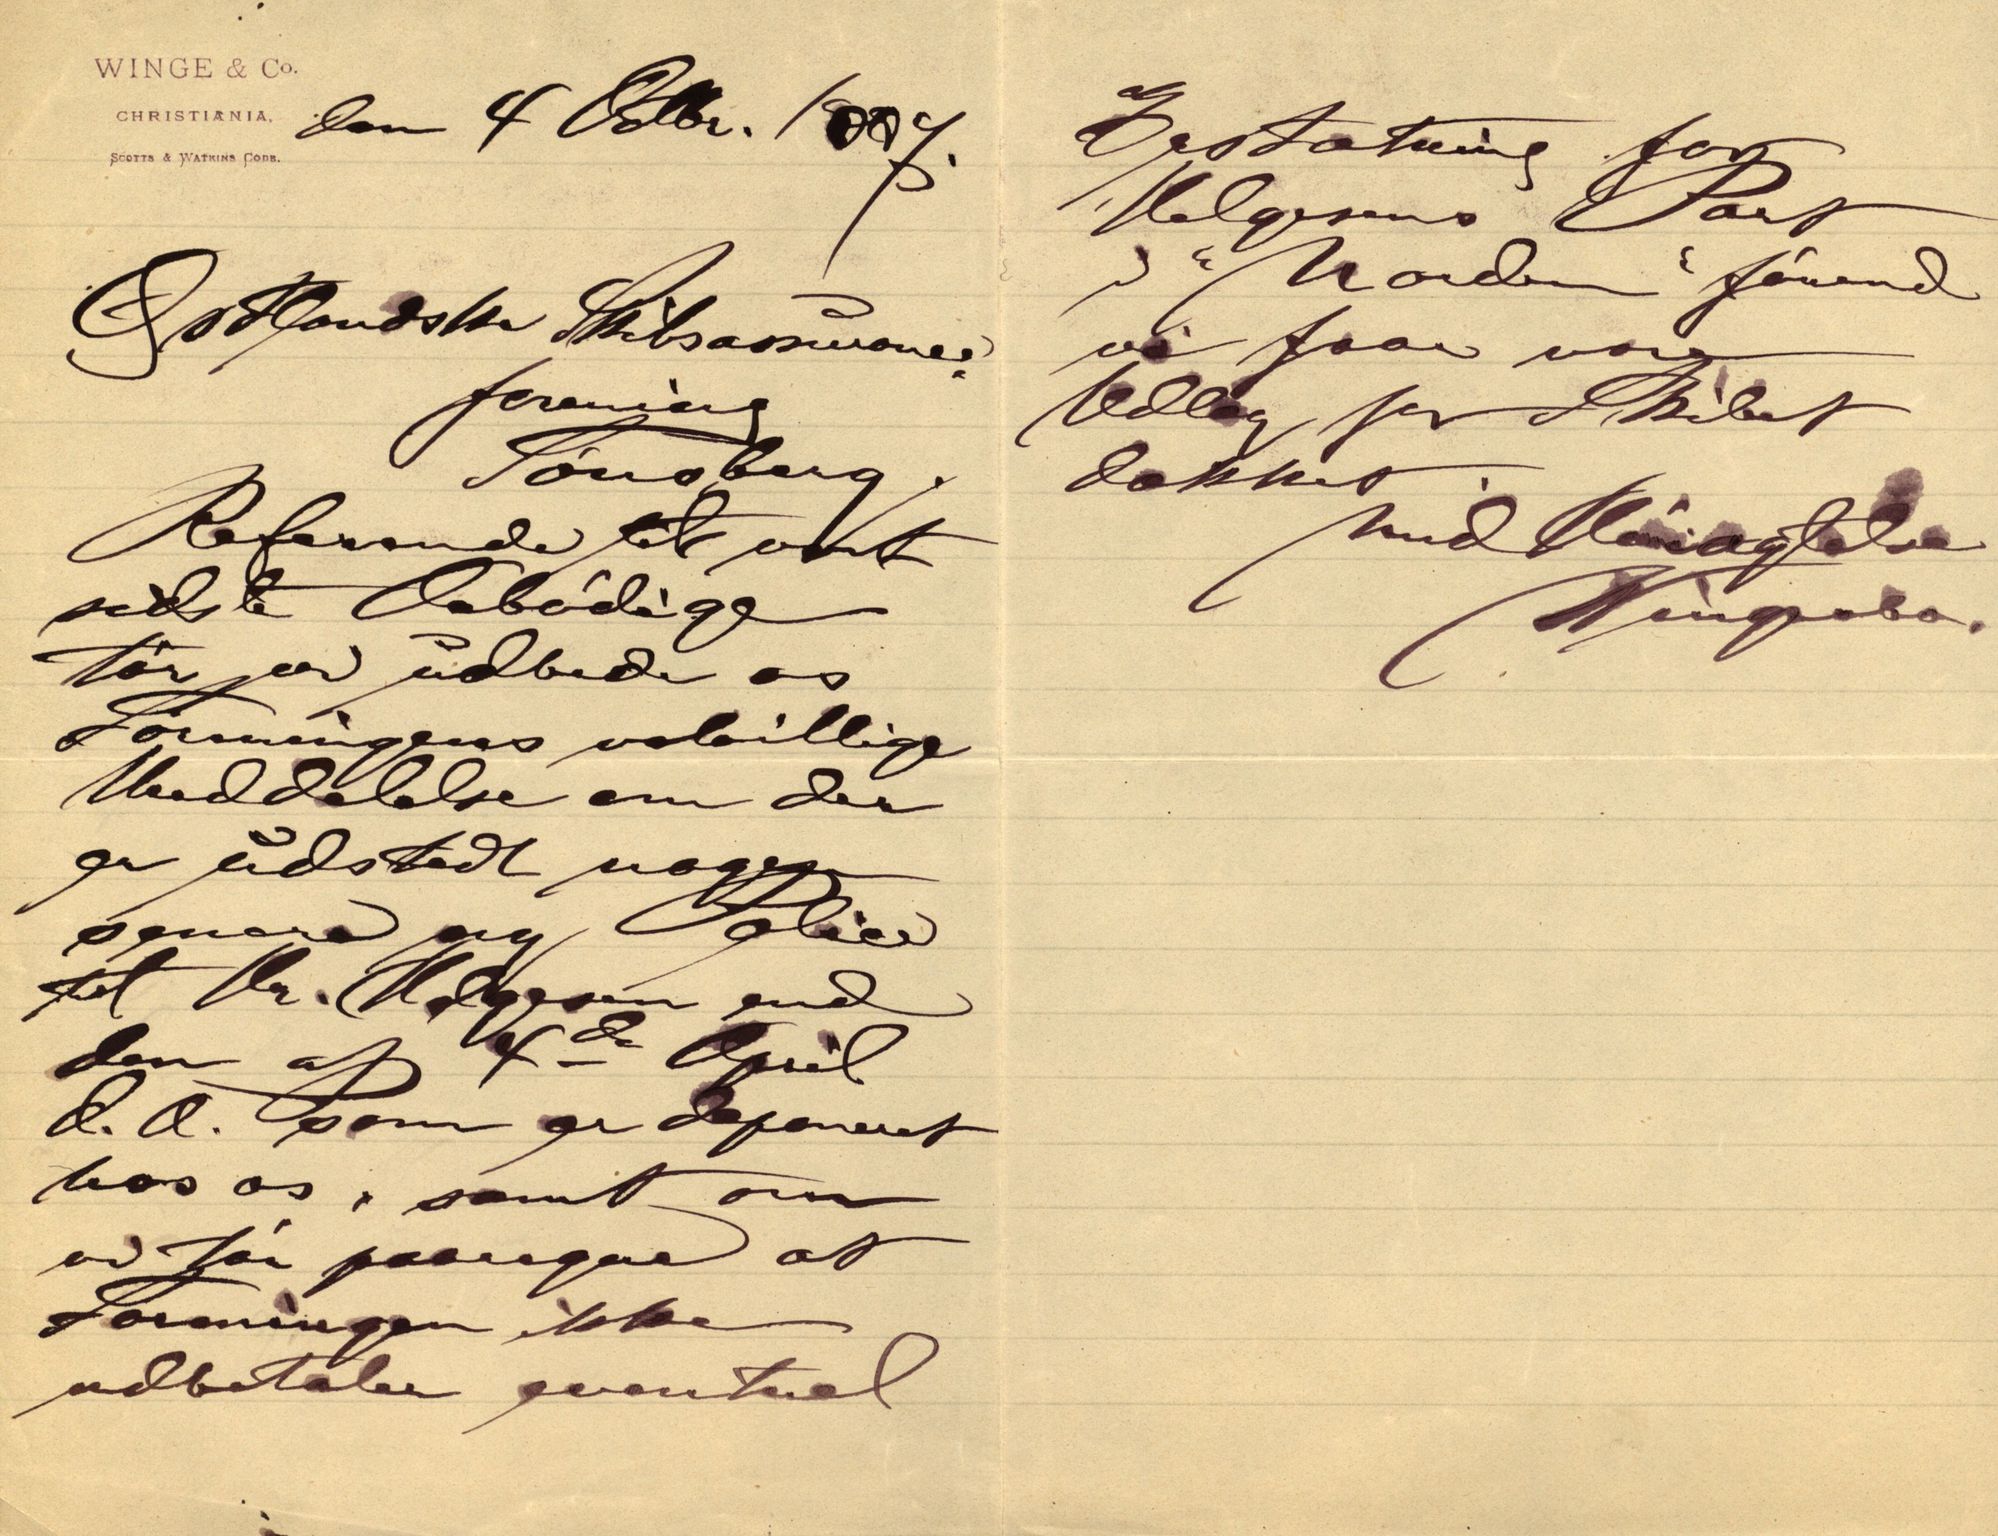 WINGE & Co.
CHRISTIANIA.
SCOTTS & WATKINS CODE.
den 4 Octbr. 1887.
Østlandske Skibsassurance
forening
Tønsberg.
Referende til vort
sidste Ærbødige
tør vi udbede os
Foreningens velvillige
Meddelelse om der
er udstedt nogen
senere ny Police
til Hr. Helgesen end
den af 4de April
d. A. som er deponeret
hos os, samt om
vi tør paaregne at
Foreningen ikke
udbetaler eventuel
Erstatning for
Helgesens Part
i "Norden" førend
vi faar vore
Udlæg for Skibet
dækket.
Med Høiagtelse
Winge & Co.